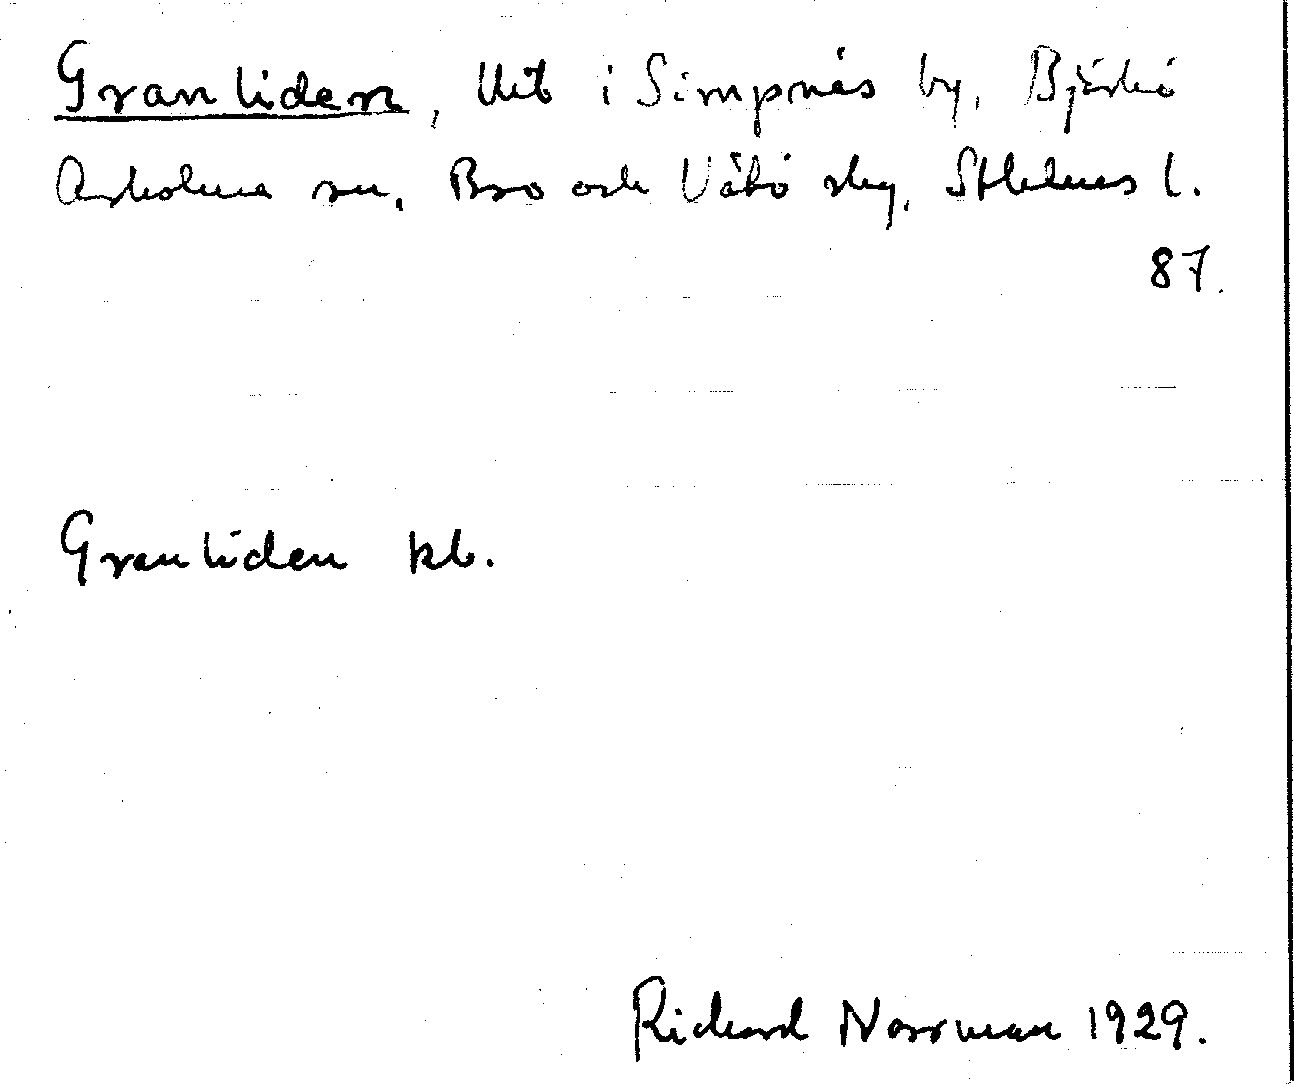 Granliden, litt i Simpnäs by, Björkö
Arholma sn, Bro och Vätö skg, Sthlms l.
87.
Granliden kb.
Richard Norrman 1929.